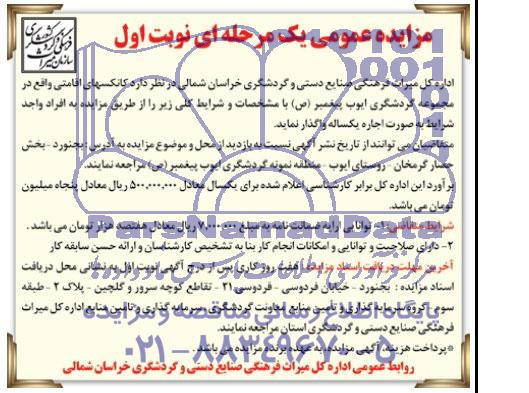 مزایده عمومی یک مرحله ای نوبت اول
اداره کل میراث فرهنگی صنایع دستی و گردشگری خراسان شمالی در نظر دارد کانکسهای اقامتی واقع در
مجموعه گردشگری ایوب پیغمبر (ص) با مشخصات و شرایط کلی زیر را از طریق مزایده به افراد واجد
شرایط به صورت اجاره یکساله واگذار نماید.
متقاضیان می توانند از تاریخ نشر آگهی نسبت به بازدید از محل و موضوع مزایده به آدرس - بجنورد - بخش
حصار گرمخان - روستای ایوب - منطقه نمونه گردشگری ایوب پیغمبر (ص) مراجعه نمایند.
برآورد این اداره کل برابر کارشناسی اعلام شده برای یکسال معادل ۵۰۰,۰۰۰,۰۰۰ ریال معادل پنجاه میلیون
تومان می باشد.
شرایط متقاضی: ۱- توانایی ارایه ضمانت نامه به مبلغ ۷,۰۰۰,۰۰۰ ریال معادل هفتصد هزار تومان می باشد.
۲- دارای صلاحیت و توانایی و امکانات انجام کار بنا به تشخیص کارشناسان و ارائه حسن سابقه کار
آخرین مهلت دریافت اسناد مزایده: هفت روز کاری پس از درج آگهی نوبت اول به نشانی محل دریافت
اسناد مزایده: بجنورد - خیابان فردوسی - فردوسی ۲۱ - تقاطع کوچه سرور و گلچین - پلاک ۲ - طبقه
سوم - گروه سرمایه گذاری و تأمین منابع معاونت گردشگری، سرمایه گذاری و تامین منابع اداره کل میراث
فرهنگی صنایع دستی و گردشگری استان مراجعه نمایند.
*پرداخت هزینه آگهی مزایده، به عهده برنده مزایده می باشد.
روابط عمومی اداره کل میراث فرهنگی صنایع دستی و گردشگری خراسان شمالی
ParsNamadData
پایگاه اطلاع رسانی مناقصه و مزایده
۰۲۱-۸۸۳۴۹۶۷۰-۵